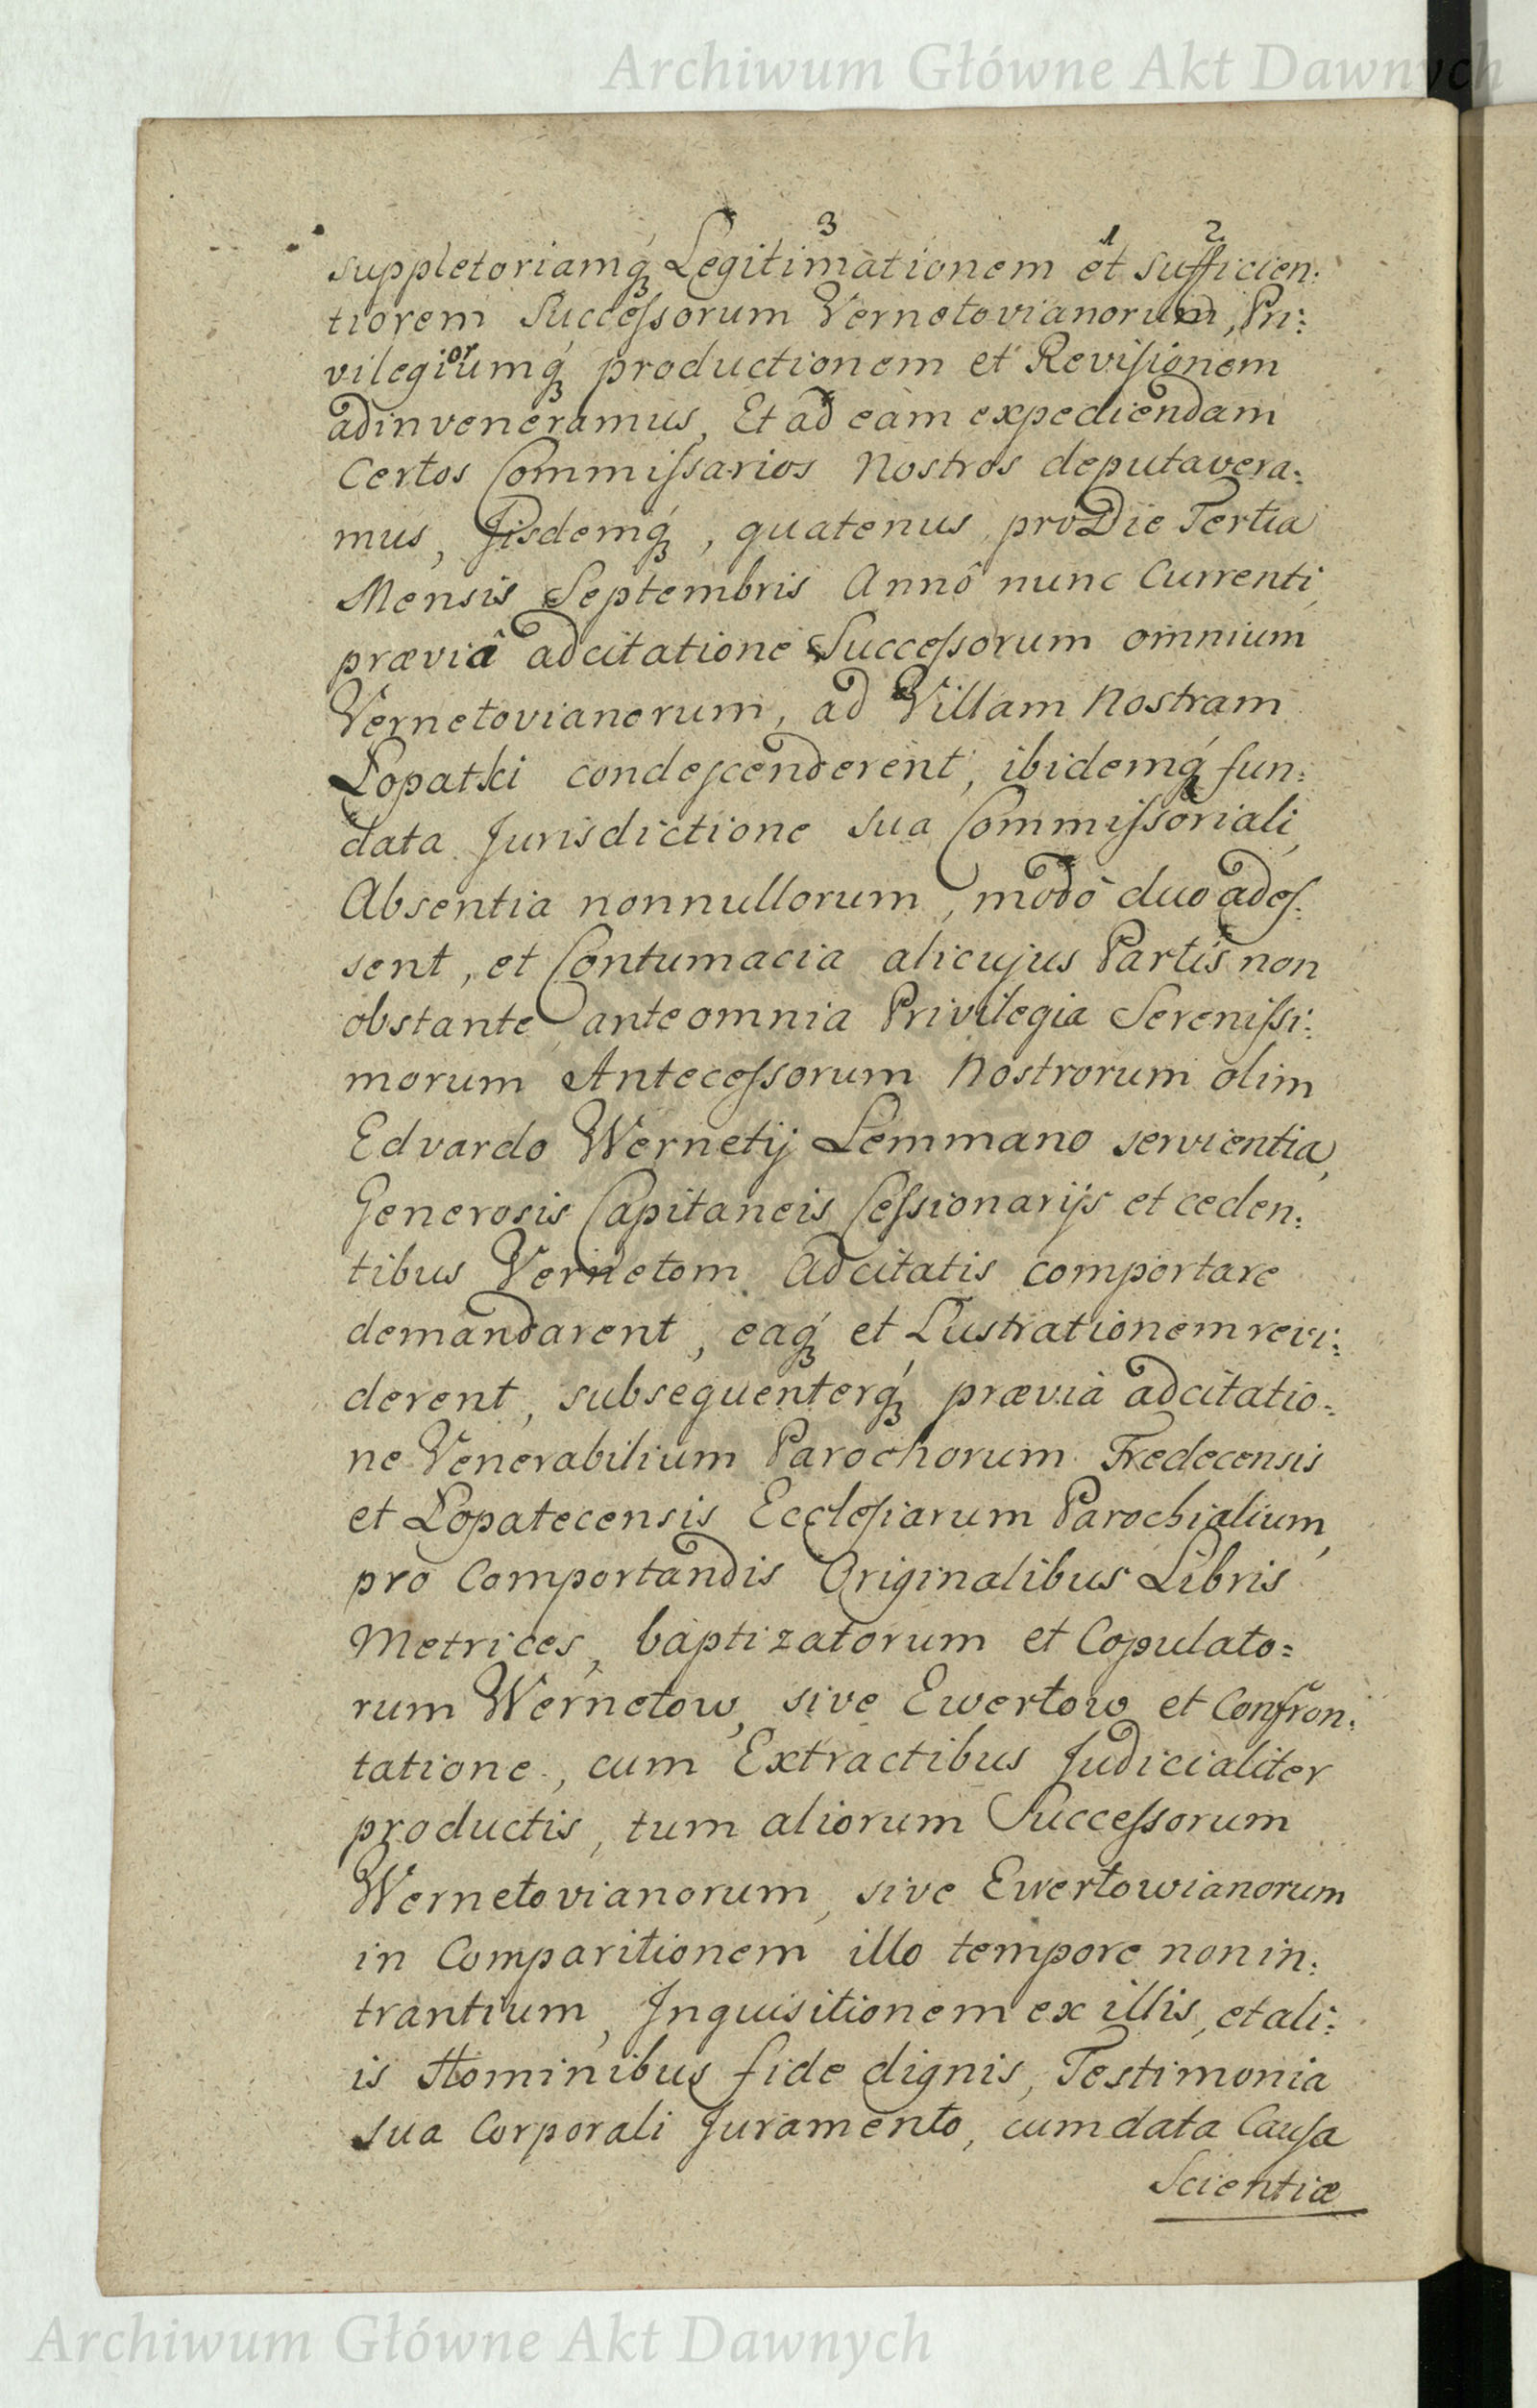 Archiwum Główne Akt Dawnych
3 1 2
suppletoriamq́ Legitimationem et sufficien:
tiorem Succeſsorum Vernetovianorum, Pri:
vilegiorumq́ productionem et Reviſionem
adinveneramus, Et ad eam expediendam
Certos Commiſsarios Nostros deputavera:
mus, Jisdemq́, quatenus pro Die Tertia
Mensis Septembris Annô nunc Currenti,
præviâ adcitatione Succeſsorum omnium
Vernetovianorum, ad Villam Nostram
Lopatki condeſcenderent, ibidemq́ fun:
data Jurisdictione sua Commiſsoriali,
Absentia nonnullorum, modò duo adeſ:
sent, et Contumacia alicujus Partis non
obstante anteomnia Privilegia Sereniſsi:
morum Anteceſsorum Nostrorum olim
Edvardo Wernetij Lemmano servientia,
Generosis Capitaneis Ceſsionarijs et ceden:
tibus Vernetom Adcitatis comportare
demandarent, eaq́ et Lustrationem revi:
derent, subsequenterq́ prævià adcitatio:
ne Venerabilium Parochorum Fredecensis
et Lopatecensis Eccleſiarum Parochialium,
pro Comportandis Originalibus Libris
Metrices, baptizatorum et Copulato:
rum Wernetow, sive Ewertow et Confron:
tatione, cum Extractibus Judicialiter
productis, tum aliorum Succeſsorum
Wernetovianorum, sive Ewertowianorum
in Comparitionem illo tempore non in:
trantium, Inquisitionem ex illis, et ali:
is Hominibus fide dignis, Testimonia
sua Corporali Juramento, cum data Cauſa
Scientiæ
Archiwum Główne Akt Dawnych